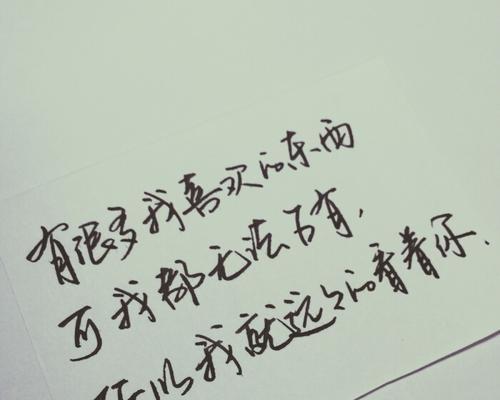 有很多我喜欢的东西
可我都无法占有,
所以我就远远的看着你.